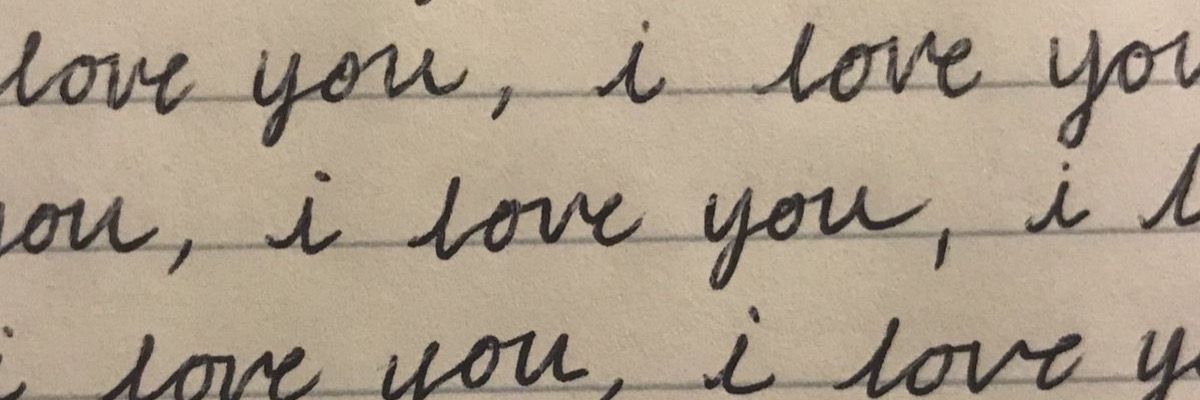 love you, i love you
you, i love you, i l
i love you, i love y